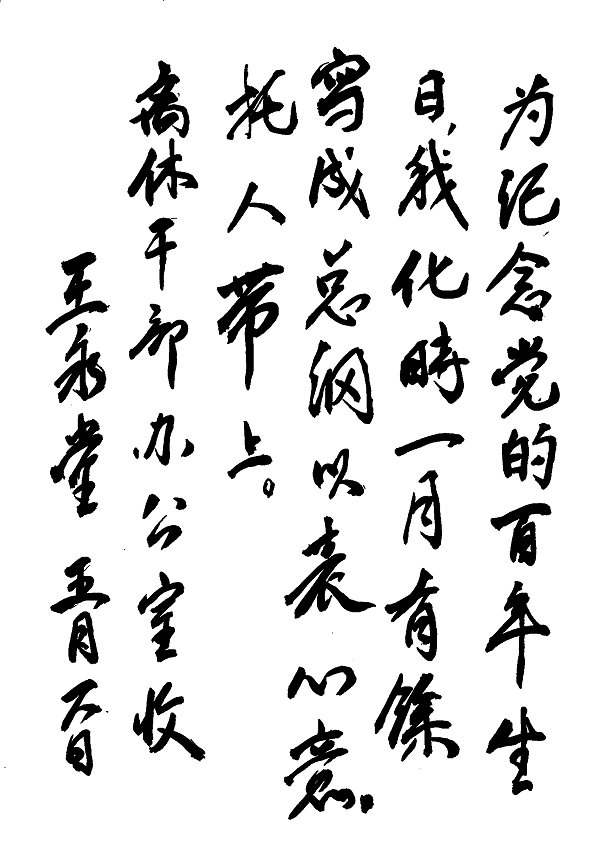 为纪念党的百年生
日,我化時一月有餘
写成总纲以表心意。
托人带上。
离休干部办公室收
王永堂 五月六日